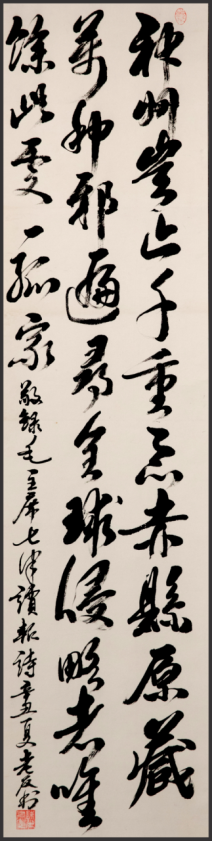 神州豈止千重恶赤縣原藏
萬种邪遍尋全球侵略者唯
餘此處一孤家 敬録毛主席七律讀報詩辛丑夏